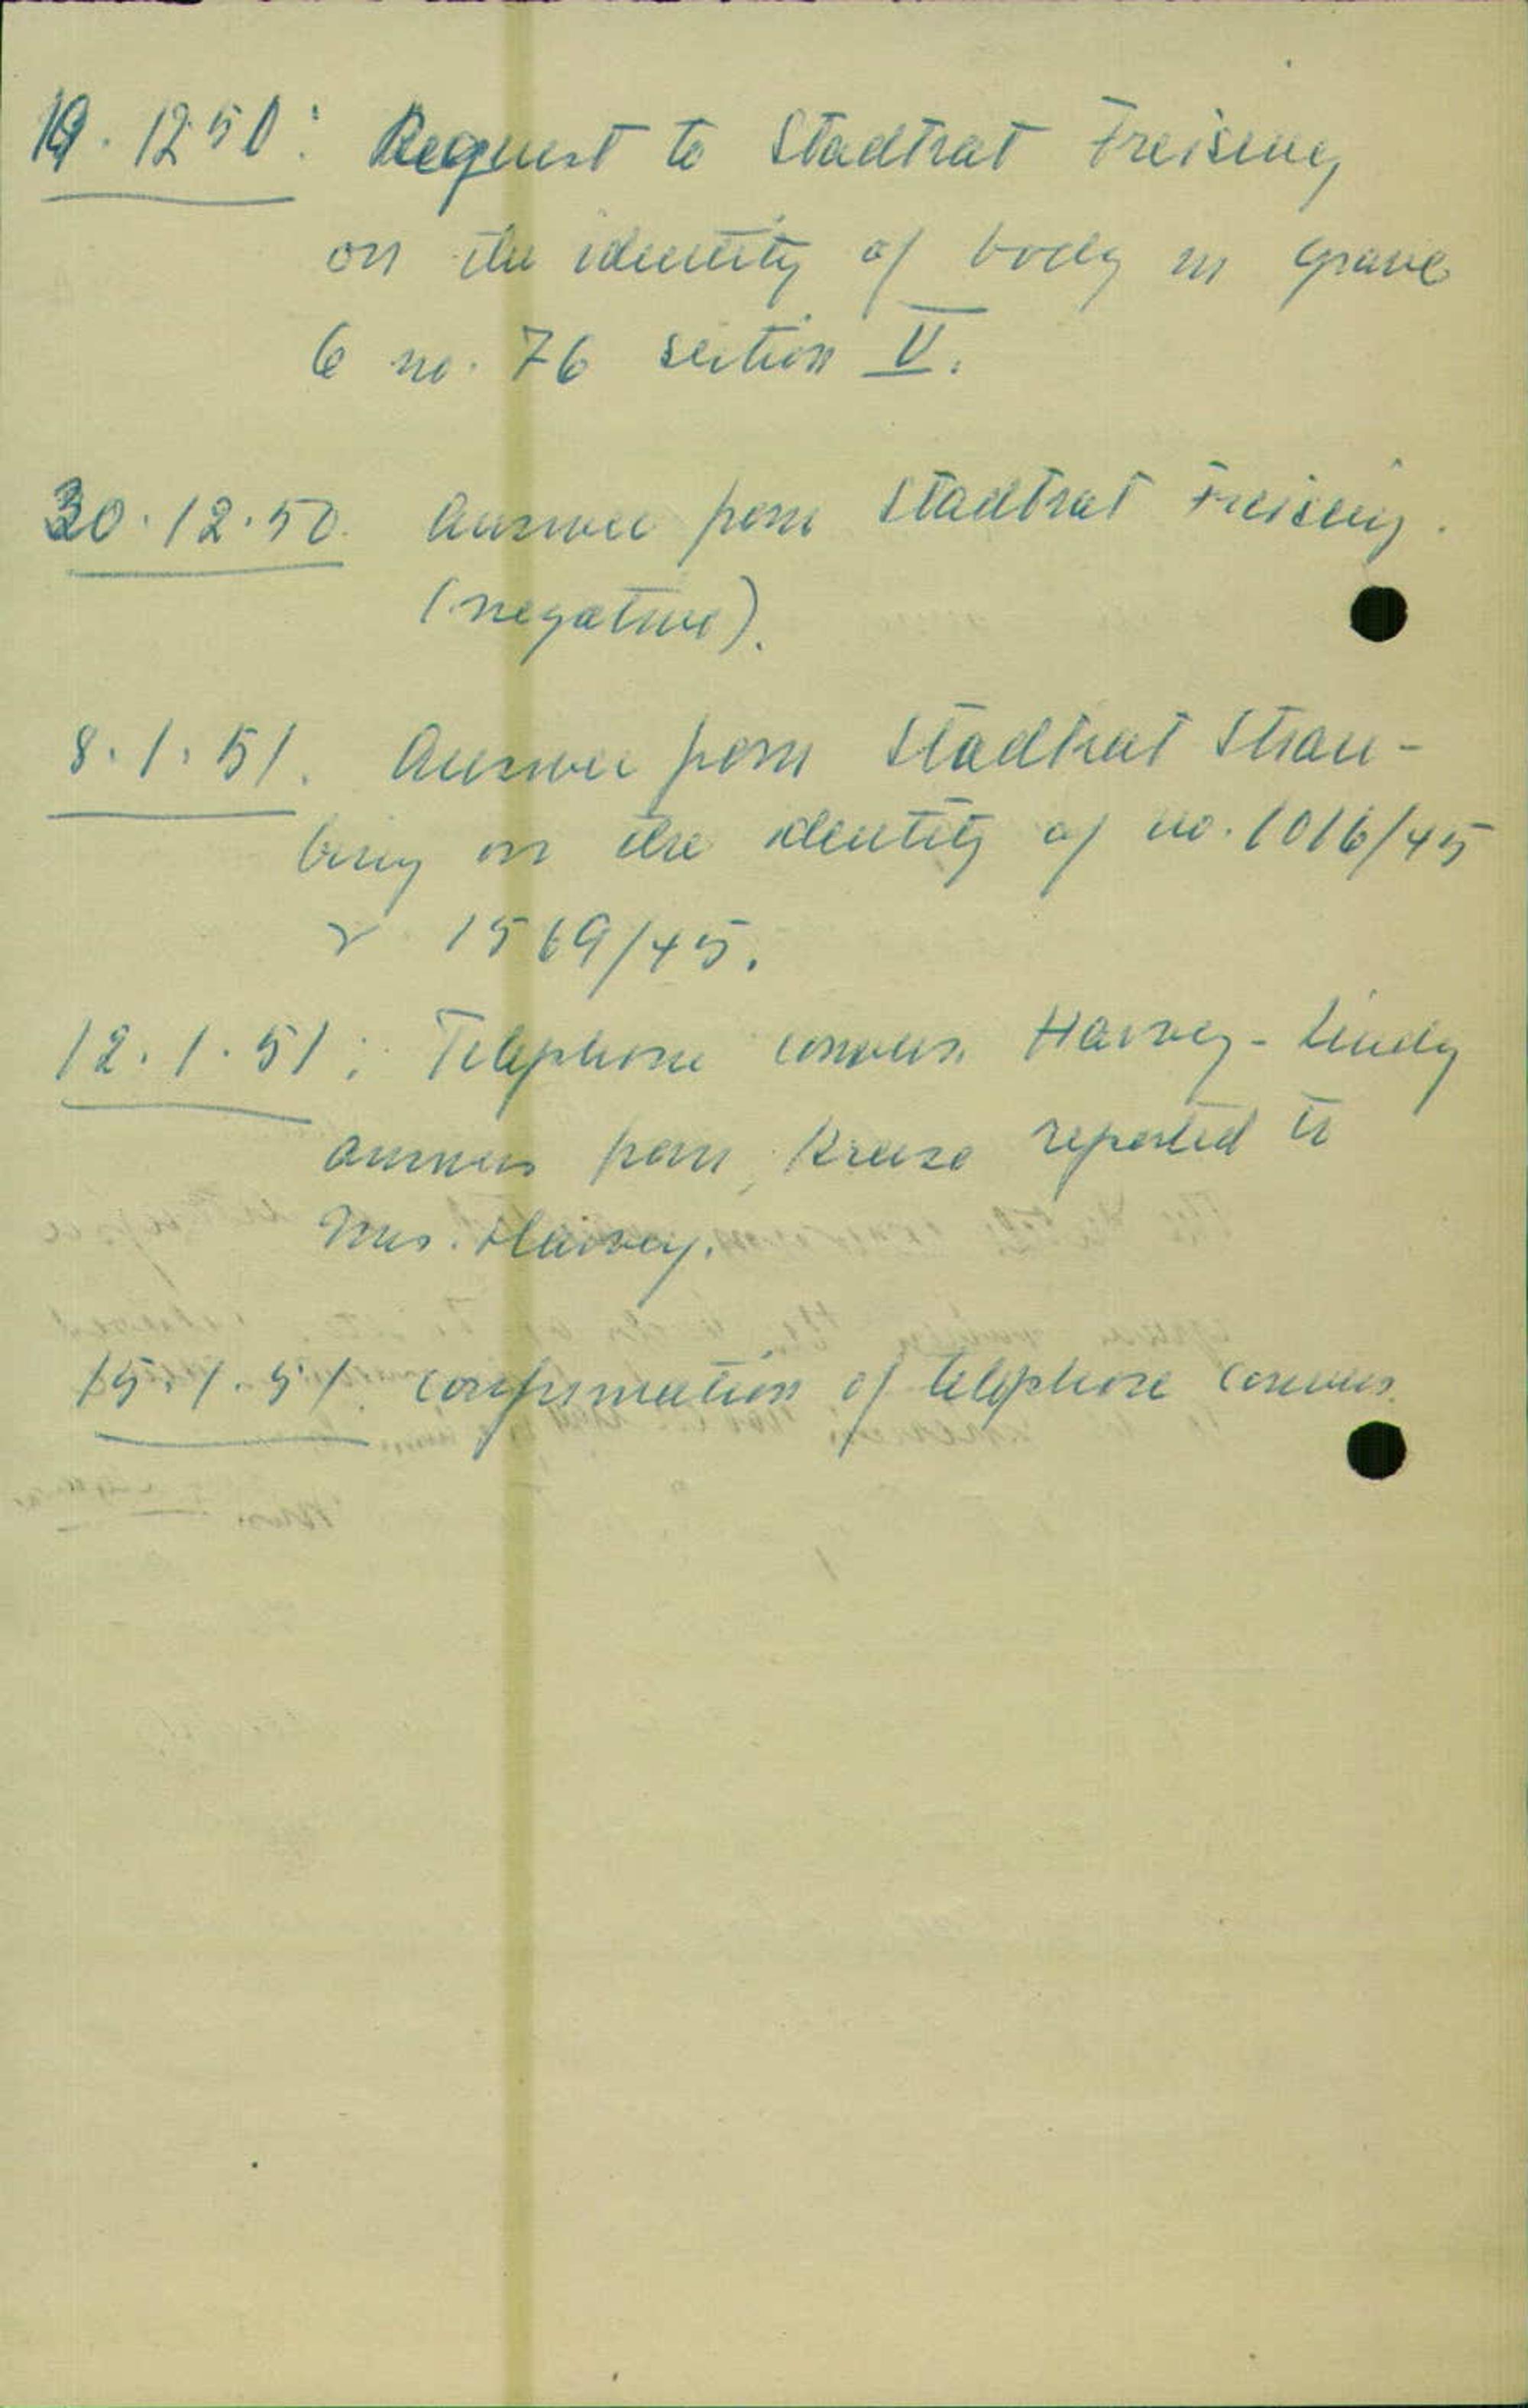 19.12.50: Request to Stadtrat Freising
on the identity of body in grave
6 no. 76 section V.
30.12.50. Answer from Stadtrat Freising.
(negative).
8.1.51. Answer from Stadtrat Strau-
bing on the identity of no. 1016/45
& 1569/45.
12.1.51: Telephone convers. Harvey - Lindy
answer from Kruse reported to
Mrs. Harvey.
15.1.51. confirmation of telephone convers.